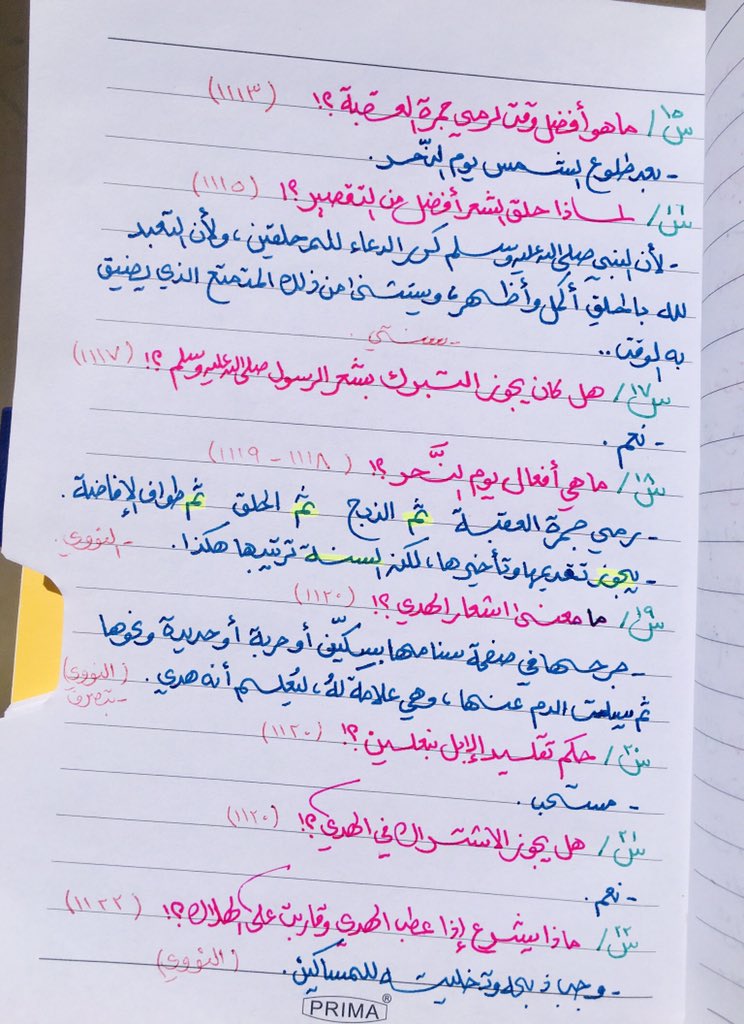 س١٥/ ما هو أفضل وقت لرمي جمرة العقبة؟! (١١١٣)
- بعد طلوع الشمس يوم النَّحر.
س١٦/ لماذا حلق الشعر أفضل من التقصير؟! (١١١٥)
- لأن النبي صلى الله عليه وسلم كرر الدعاء للمحلقين، ولأن التعبد
لله بالحلق أكمل وأظهر، ويستثنى من ذلك المتمتع الذي يضيق
به الوقت..
س١٧/ هل كان يجوز التبرك بشعر الرسول صلى الله عليه وسلم؟! (١١١٧)
- نعم.
س١٨/ ما هي أفعال يوم النَّحر؟! (١١١٨ - ١١١٩)
- رمي جمرة العقبة ثم الذبح ثم الحلق ثم طواف الإفاضة.
- يجوز تقديمها وتأخيرها، لكن السنة ترتيبها هكذا. - النووي.
س١٩/ ما معنى اشعار الهدي؟! (١١٢٠)
- جرحها في صفحة سنامها بسكين أو حربة أو حديدة ونحوها
ثم يسلت الدم عنها، وهي علامة لهُ، ليُعلم أنه هدي. (النووي)
- بتصرف
س٢٠/ حكم تقليد الإبل بنعلين؟! (١١٢٠)
- مستحب.
س٢١/ هل يجوز الاشتراك في الهدي؟! (١١٢٠)
- نعم.
س٢٢/ ماذا يشرع إذا عطب الهدي وقاربت على الهلاك؟! (١١٢٢)
- وجب ذبحه وتخليته للمساكين. (النووي)
PRIMA®